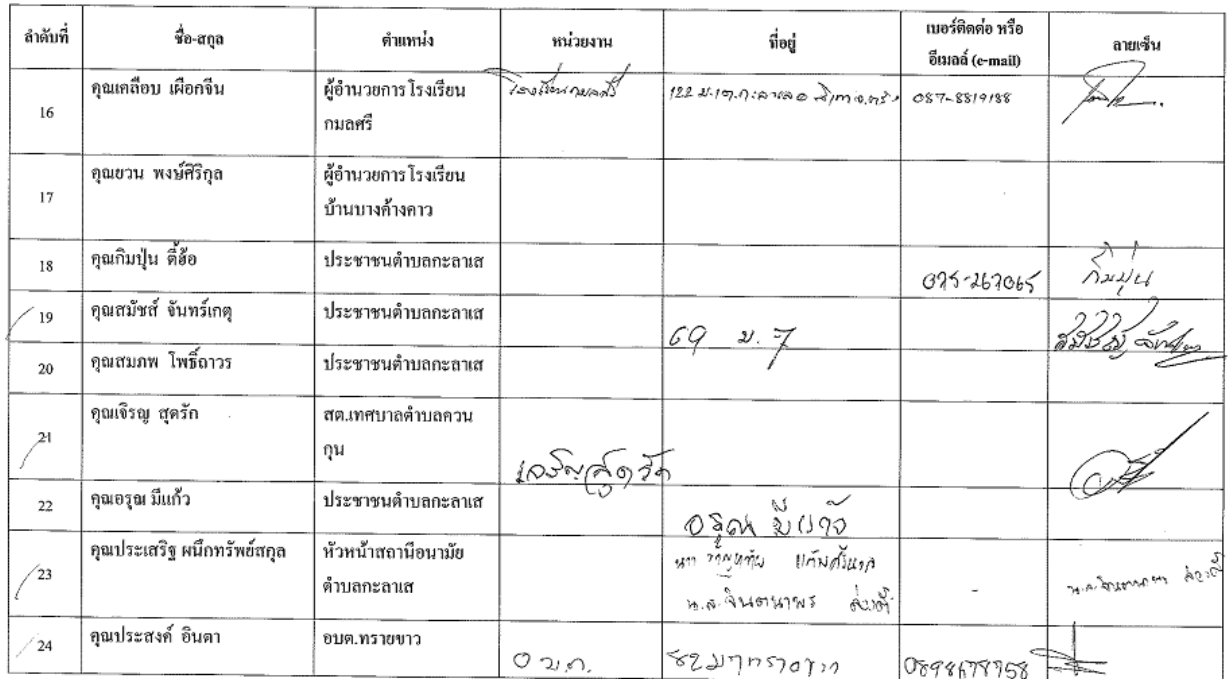 ลำดับที่ ชื่อ-สกุล ตำแหน่ง หน่วยงาน ที่อยู่ เบอร์ติดต่อ หรือ อีเมลล์ (e-mail) ลายเซ็น
16 คุณเคลือบ เผือกจีน ผู้อำนวยการโรงเรียน โรงเรียนกมลศรี 087-8819188
กมลศรี
17 คุณยวน พงษ์ศิริกุล ผู้อำนวยการโรงเรียน
บ้านบางค้างคาว
18 คุณกิมปุ่น ตี้ฮ้อ ประชาชนตำบลกะลาเส 075-267065 กิมปุ่น
19 คุณสมัชส์ จันทร์เกตุ ประชาชนตำบลกะลาเส 69 ม. 7
20 คุณสมภพ โพธิ์ถาวร ประชาชนตำบลกะลาเส
21 คุณเจิรญ สุดรัก สต.เทศบาลตำบลควน
กุน
เจริญ สุดรัก
22 คุณอรุณ มีแก้ว ประชาชนตำบลกะลาเส อรุณ มีแก้ว
23 คุณประเสริฐ ผนึกทรัพย์สกุล หัวหน้าสถานีอนามัย
ตำบลกะลาเส น.ส.จินตนาพร -
24 คุณประสงค์ อินตา อบต.ทรายขาว อบต.